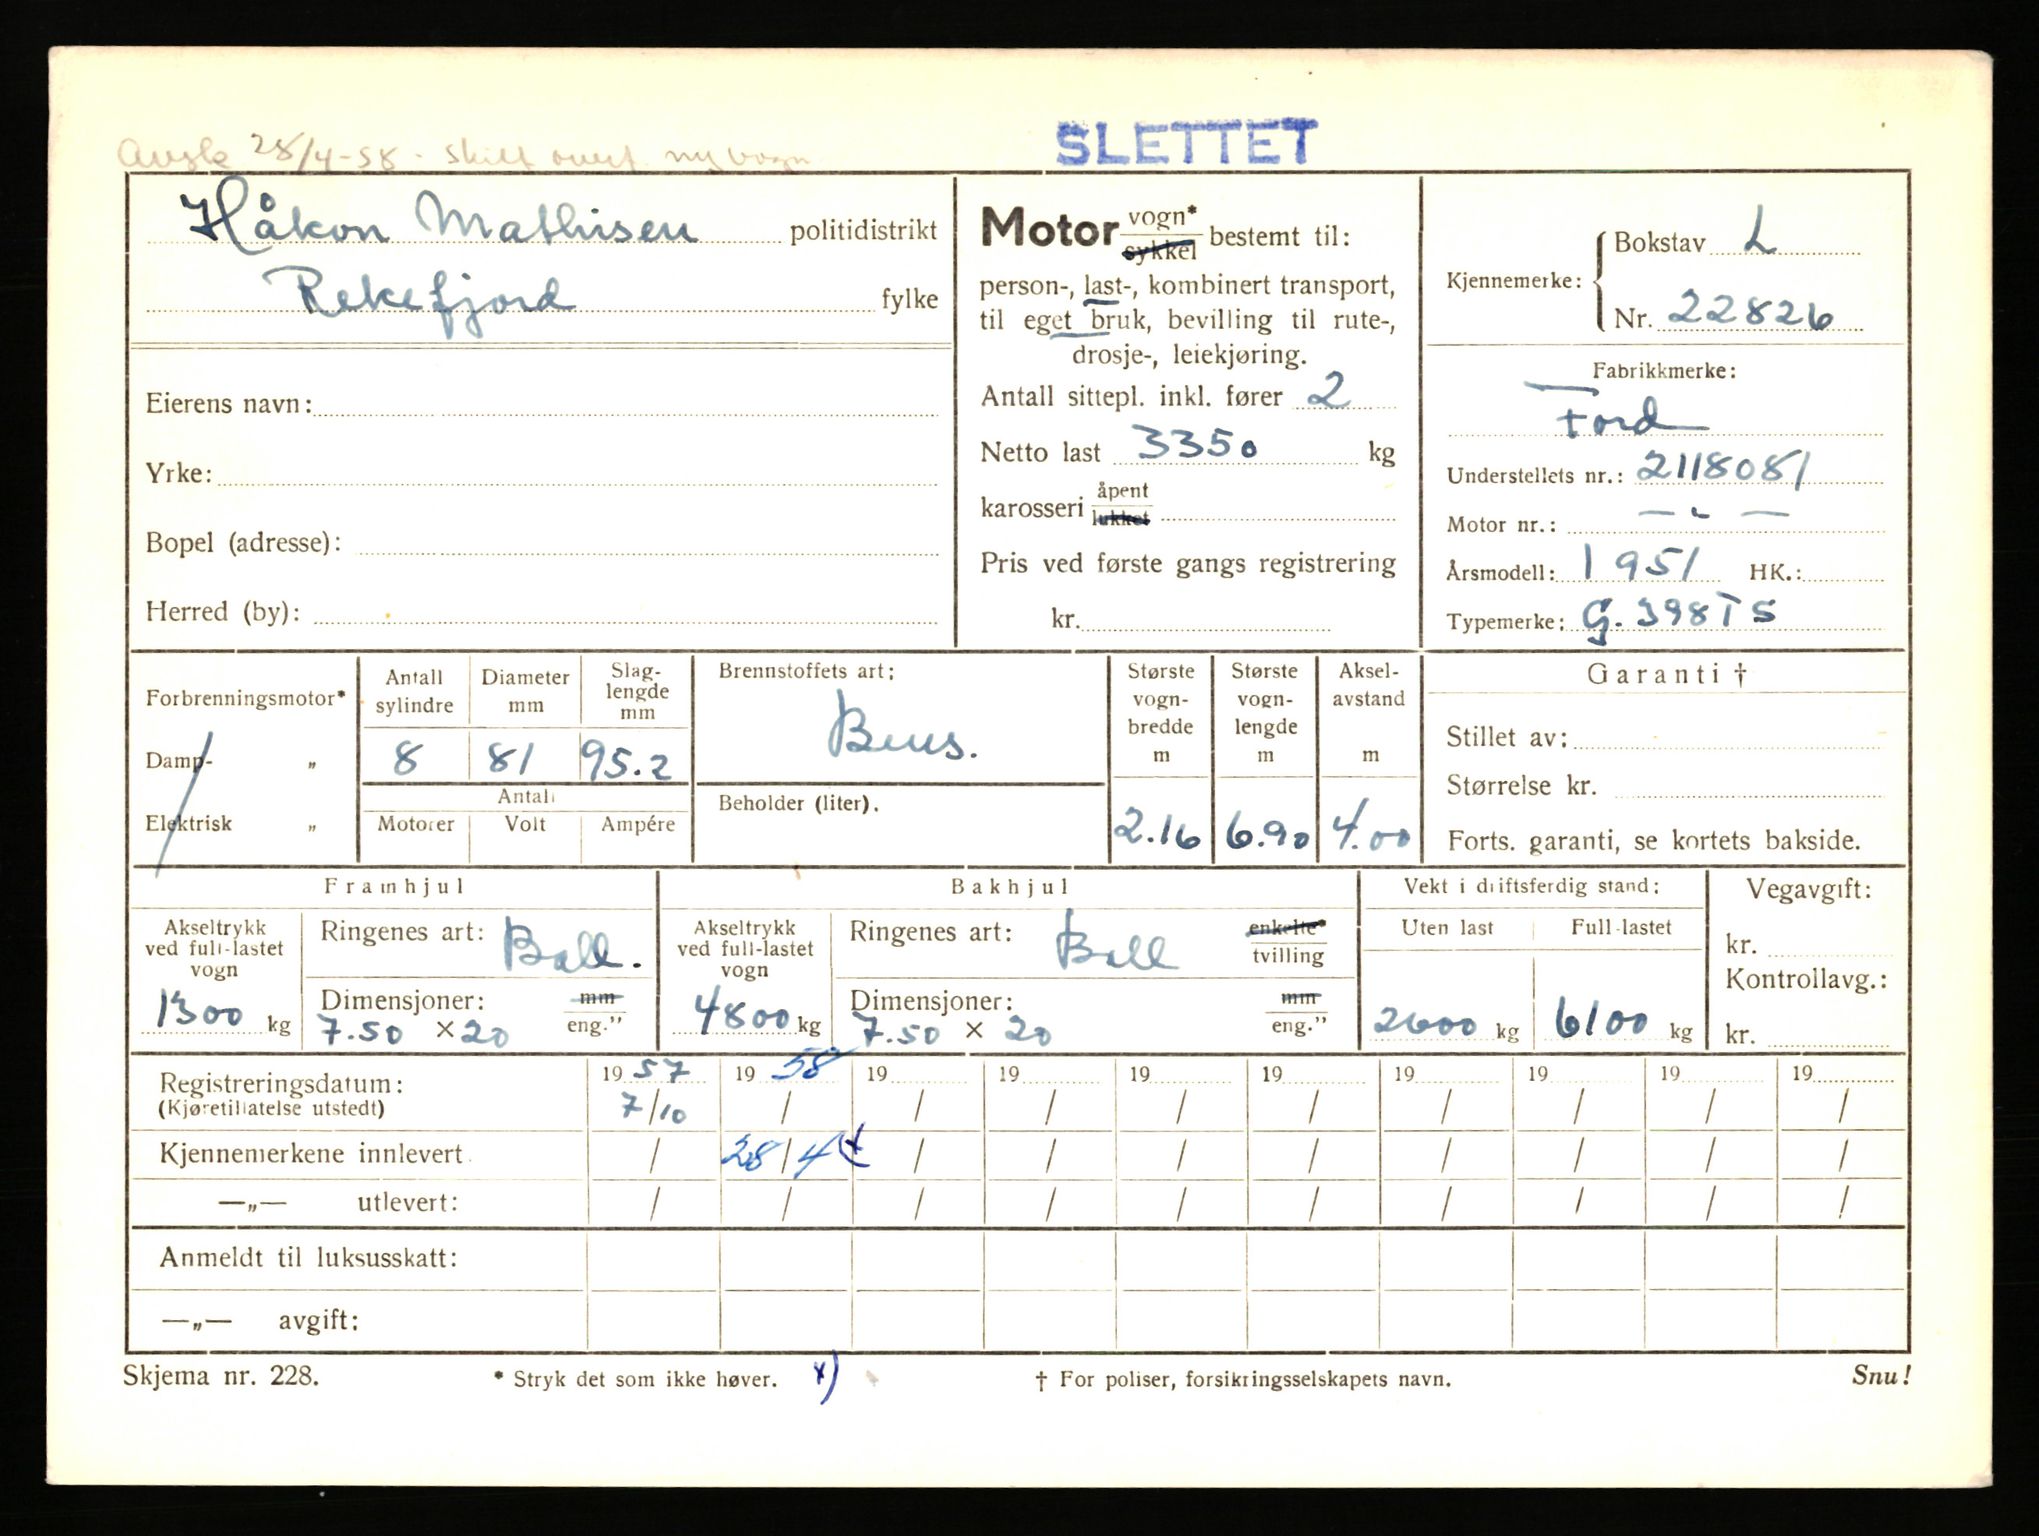 Avsk 28/4-58 - skilt overf. ny vogn
SLETTET
Håkon Mathisen politidistrikt
Rekefjord fylke
Eierens navn:
Yrke:
Bopel (adresse):
Herred (by):
Motor vogn* sykkel bestemt til:
person-, last-, kombinert transport,
til eget bruk, bevilling til rute-,
drosje-, leiekjøring.
Antall sittepl. inkl. fører 2
Netto last 3350 kg
karosseri åpent lukket
Pris ved første gangs registrering
kr.
Kjennemerke: Bokstav L
Nr. 22826
Fabrikkmerke:
Ford
Understellets nr.: 2118081
Motor nr.: — " —
Årsmodell: 1951 HK.:
Typemerke: G. 398TS
Forbrenningsmotor*
Damp- „
Elektrisk „
Antall sylindre
Diameter mm
Slag-lengde mm
8 81 95.2
Antall
Motorer Volt Ampére
Brennstoffets art:
Bens.
Beholder (liter).
Største vogn-bredde m
Største vogn-lengde m
Aksel-avstand m
2.16 6.90 4.00
Garanti †
Stillet av:
Størrelse kr.
Forts. garanti, se kortets bakside.
Framhjul
Akseltrykk ved full-lastet vogn
1300 kg
Ringenes art: Ball.
Dimensjoner: mm
7.50 × 20 eng.”
Bakhjul
Akseltrykk ved full-lastet vogn
4800 kg
Ringenes art: Ball enkelte* tvilling
Dimensjoner: mm
7.50 × 20 eng.”
Vekt i driftsferdig stand:
Uten last Full-lastet
2600 kg 6100 kg
Vegavgift:
kr.
Kontrollavg.:
kr.
Registreringsdatum: 1957 1958 19 19 19 19 19 19 19 19
(Kjøretillatelse utstedt) 7/10 / / / / / / / / /
Kjennemerkene innlevert / 28/4 x / / / / / / / /
—„— utlevert: / / / / / / / / / /
Anmeldt til luksusskatt:
—„— avgift:
Skjema nr. 228. * Stryk det som ikke høver. x) † For poliser, forsikringsselskapets navn. Snu!